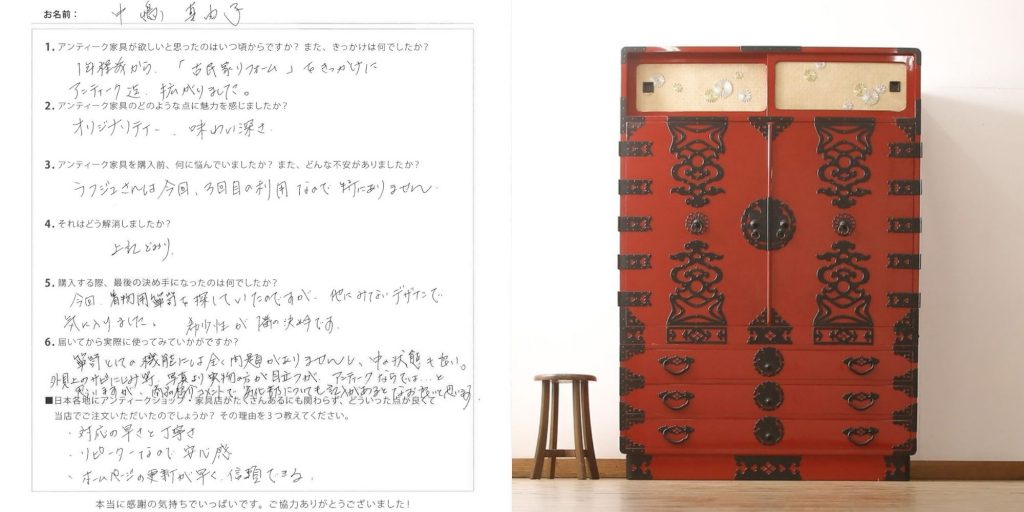 お名前： 中嶋 真由子
1. アンティーク家具が欲しいと思ったのはいつ頃からですか？ また、きっかけは何でしたか？
1年程前から、「古民家リフォーム」をきっかけに
アンティーク迄、拡がりました。
2. アンティーク家具のどのような点に魅力を感じましたか？
オリジナリティー、味わい深さ
3. アンティーク家具を購入前、何に悩んでいましたか？ また、どんな不安がありましたか？
ラフジュさんは今回、3回目の利用なので特にありません
4. それはどう解消しましたか？
上記どおり
5. 購入する際、最後の決め手になったのは何でしたか？
今回、着物用箪笥を探していたのですが、他にみないデザインで
気に入りました。 希少性が 1番の決め手です。
6. 届いてから実際に使ってみていかがですか？
箪笥としての機能には全く問題がありませんし、中の状態も良い。
外見上の 写真より実物の方が目立つが、アンティークならでは…と
思いますが、商品紹介コメントで 劣化部についても記入があるとなお良いと思います
■日本各地にアンティークショップ・家具店がたくさんあるにも関わらず、どういった点が良くて
当店でご注文いただいたのでしょうか？ その理由を３つ教えてください。
・対応の早さと丁寧さ
・リピーターなので 安心感
・ホームページの更新が早く、信頼できる。
本当に感謝の気持ちでいっぱいです。ご協力ありがとうございました！